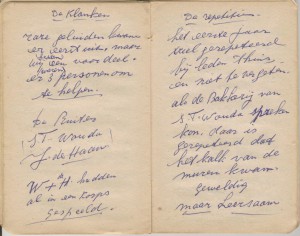 De Klanken
rare geluiden kwamen
er eerst uit, maar
wij een voordeel
als 3 personen om
te helpen.
te Buiten
S.T. Wouda
J. de Haan
W + H hadden
al in een korps
gespeeld.
De repetities
het eerste jaar
veel gerepeteerd
bij leden thuis
en niet te vergeten
als de Bakkerij van
S.T. Wouda spreken
kon. daar is
gerepeteerd dat
het kalk van de
muren kwam
geweldig
maar Leerzaam